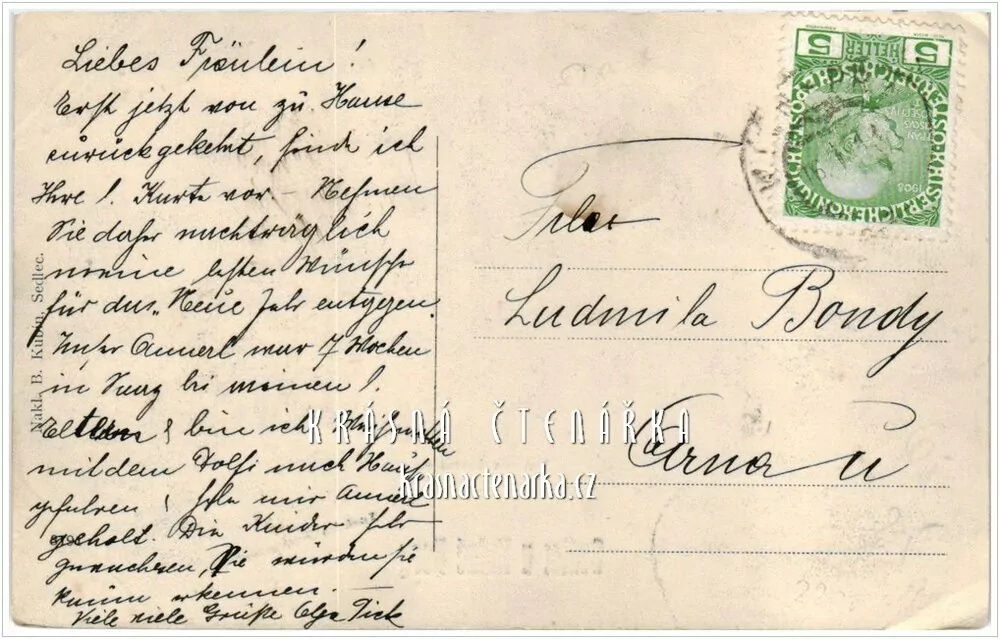 Liebes Fräulein!
Erst jetzt von zu Hause
zurückgekehrt, finde ich
Ihre l. Karte vor. – Nehmen
Sie daher nachträglich
meine besten Wünsche
für das „Neue Jahr entgegen.
Unser Annerl war 7 Wochen
in bei meinen l.
Eltern & bin ich
mit dem Dolfi nach Haus
gefahren & mir Annerl
geholt. Die Kinder sehr
gewachsen, Sie würden sie
kaum erkennen.
Viele viele Grüße Olga Tick
Nakl. B. Kubín, Sedlec.
5 HELLER 5
1908
Ludmila Bondy
Arnau
KRÁSNÁ ČTENÁŘKA
krasnactenarka.cz